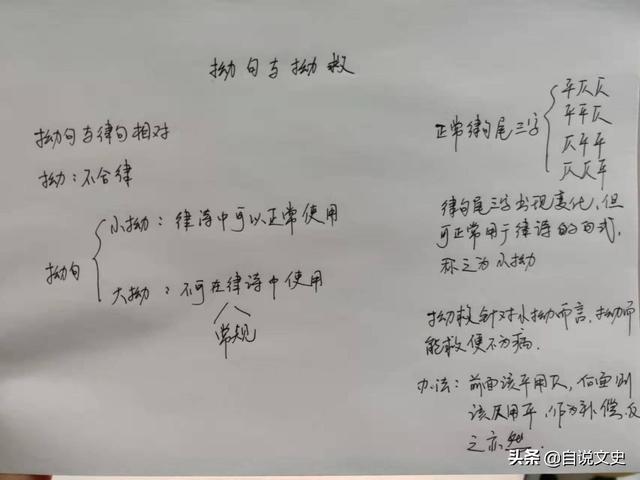 拗句与拗救
拗句与律句相对
拗：不合律
拗句
小拗：律诗中可以正常使用
大拗：不可在律诗中使用
常规
正常律句尾三字
平仄仄
平平仄
仄平平
仄仄平
律句尾三字出现变化，但
可正常用于律诗的句式，
称之为小拗
拗救针对小拗而言，拗而
能救便不为病.
办法：前面该平用仄，后面则
该仄用平，作为补偿，反
之亦然.
头条 @自说文史